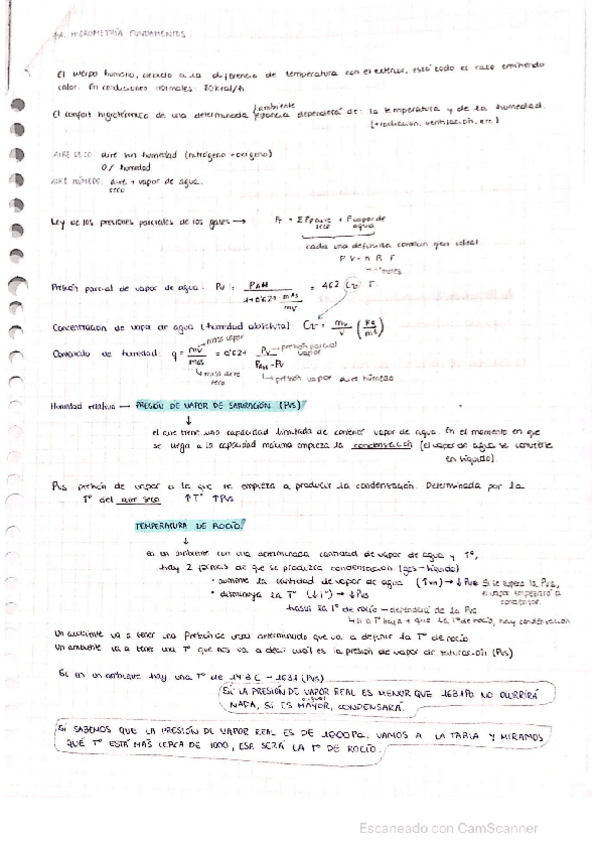 HIGROMETRÍA FUNDAMENTOS
El cuerpo humano, debido a la diferencia de temperatura con el exterior, está todo el rato emitiendo
calor. En condiciones normales: 80kcal/h
ambiente
El confort higrotérmico de una determinada dependerá de: la temperatura y de la humedad.
(+radiación, ventilación, etc.)
AIRE SECO aire sin humedad (nitrógeno + oxígeno)
0% humedad
AIRE HÚMEDO: aire + vapor de agua.
seco
Ley de las presiones parciales de los gases → PT = ΣPPaire + Pvapor de
seco agua
cada una definida como un gas ideal
P·V = n R T
nº moles
Presión parcial de vapor de agua: Pv = = 462 Cv T
Concentración de vapor de agua (humedad absoluta) Cv = mv/V (kg/m³)
masa vapor presión parcial
Contenido de humedad: q = mv/mas = 0'621 Pv/ -Pv vapor
masa aire presión vapor aire húmedo
seco
Humedad relativa → PRESIÓN DE VAPOR DE SATURACIÓN (Pvs)
el aire tiene una capacidad limitada de contener vapor de agua. En el momento en que
se llega a la capacidad máxima empieza la condensación (el vapor de agua se convierte
en líquido).
Pvs presión de vapor a la que se empieza a producir la condensación. Determinada por la
Tº del aire seco ↑Tº ↑Pvs
TEMPERATURA DE ROCÍO
↓
En un ambiente con una determinada cantidad de vapor de agua y Tº,
hay 2 formas de que se produzca condensación (gas-líquido)
• aumente la cantidad de vapor de agua Si se supera la Pvs,
el vapor empezará a
condensar.
• disminuya la Tº (↓Tº) → ↓Pvs
hasta la Tº de rocío - dependerá de la Pvs
↳ si la Tº baja + que la Tº de rocío, hay condensación
Un ambiente va a tener una Presión de vapor determinado que va a definir la Tº de rocío
Un ambiente va a tener una Tº que nos va a decir cuál es la presión de vapor de saturación (Pvs)
Ej: en un ambiente hay una Tº de 14'3 C - 1631 (Pvs)
SI LA PRESIÓN DE VAPOR REAL ES MENOR QUE 1631Pa NO OCURRIRÁ
igual
NADA, SI ES MAYOR, CONDENSARÁ.
SI SABEMOS QUE LA PRESIÓN DE VAPOR REAL ES DE 1000Pa. VAMOS A LA TABLA Y MIRAMOS
QUÉ Tº ESTÁ MÁS CERCA DE 1000, ESA SERÁ LA Tº DE ROCÍO.
Escaneado con CamScanner